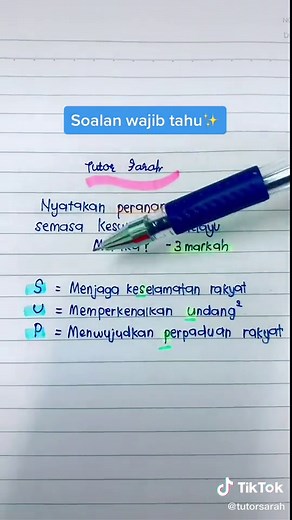 Soalan wajib tahu✨
Tutor Sarah
Nyatakan peranan
semasa
- 3 markah
S = Menjaga keselamatan rakyat
U = Memperkenalkan undang²
P = Menwujudkan perpaduan rakyat
TikTok
@tutorsarah